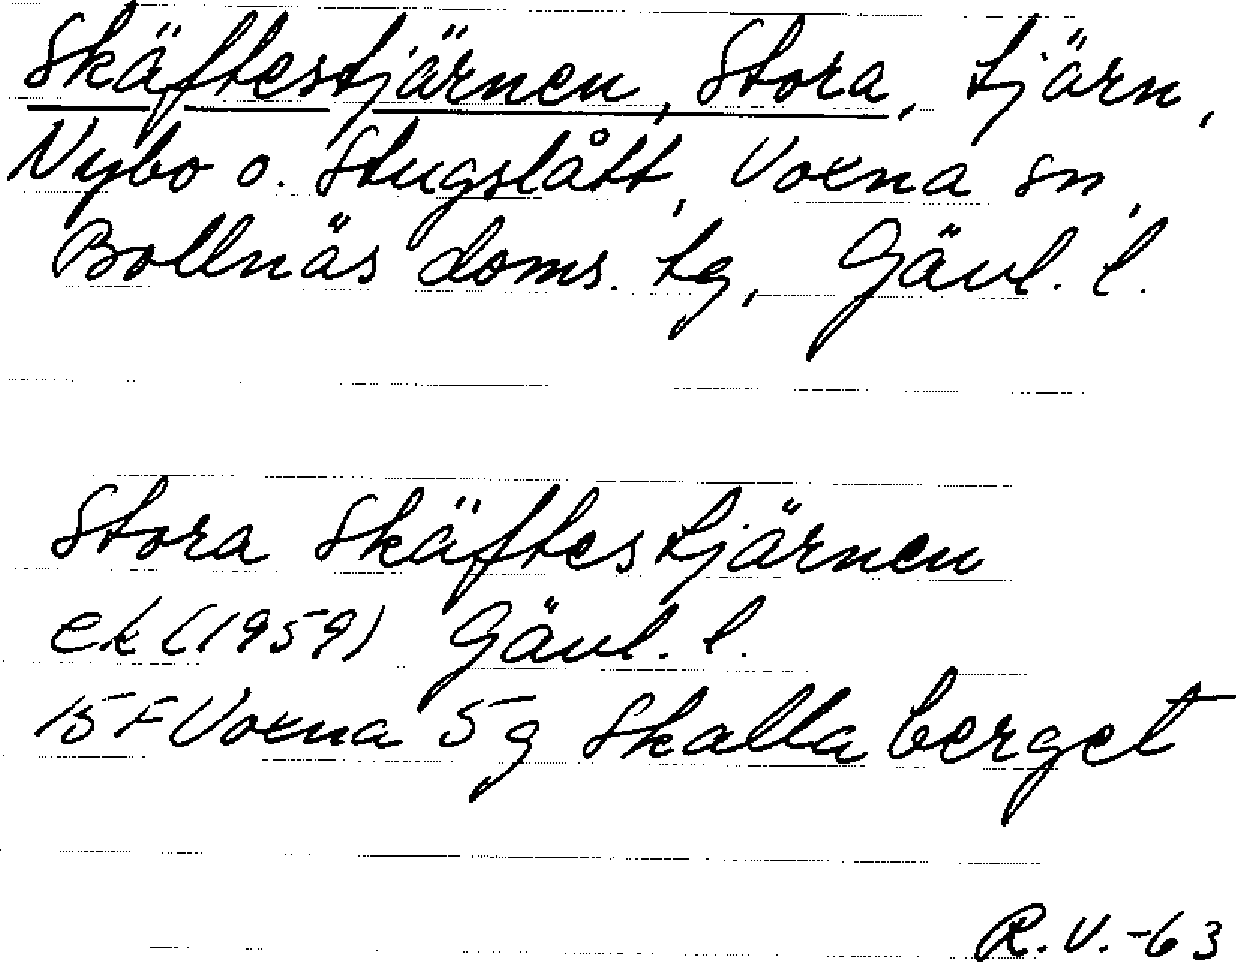 Skäftestjärnen, Stora, tjärn,
Nybo o. Stugslått, Voxna sn,
Bollnäs doms. tg, Gävl. l.
Stora Skäftestjärnen
ek (1959) Gävl. l.
15 F Voxna 5 g Skallaberget
R.V.-63